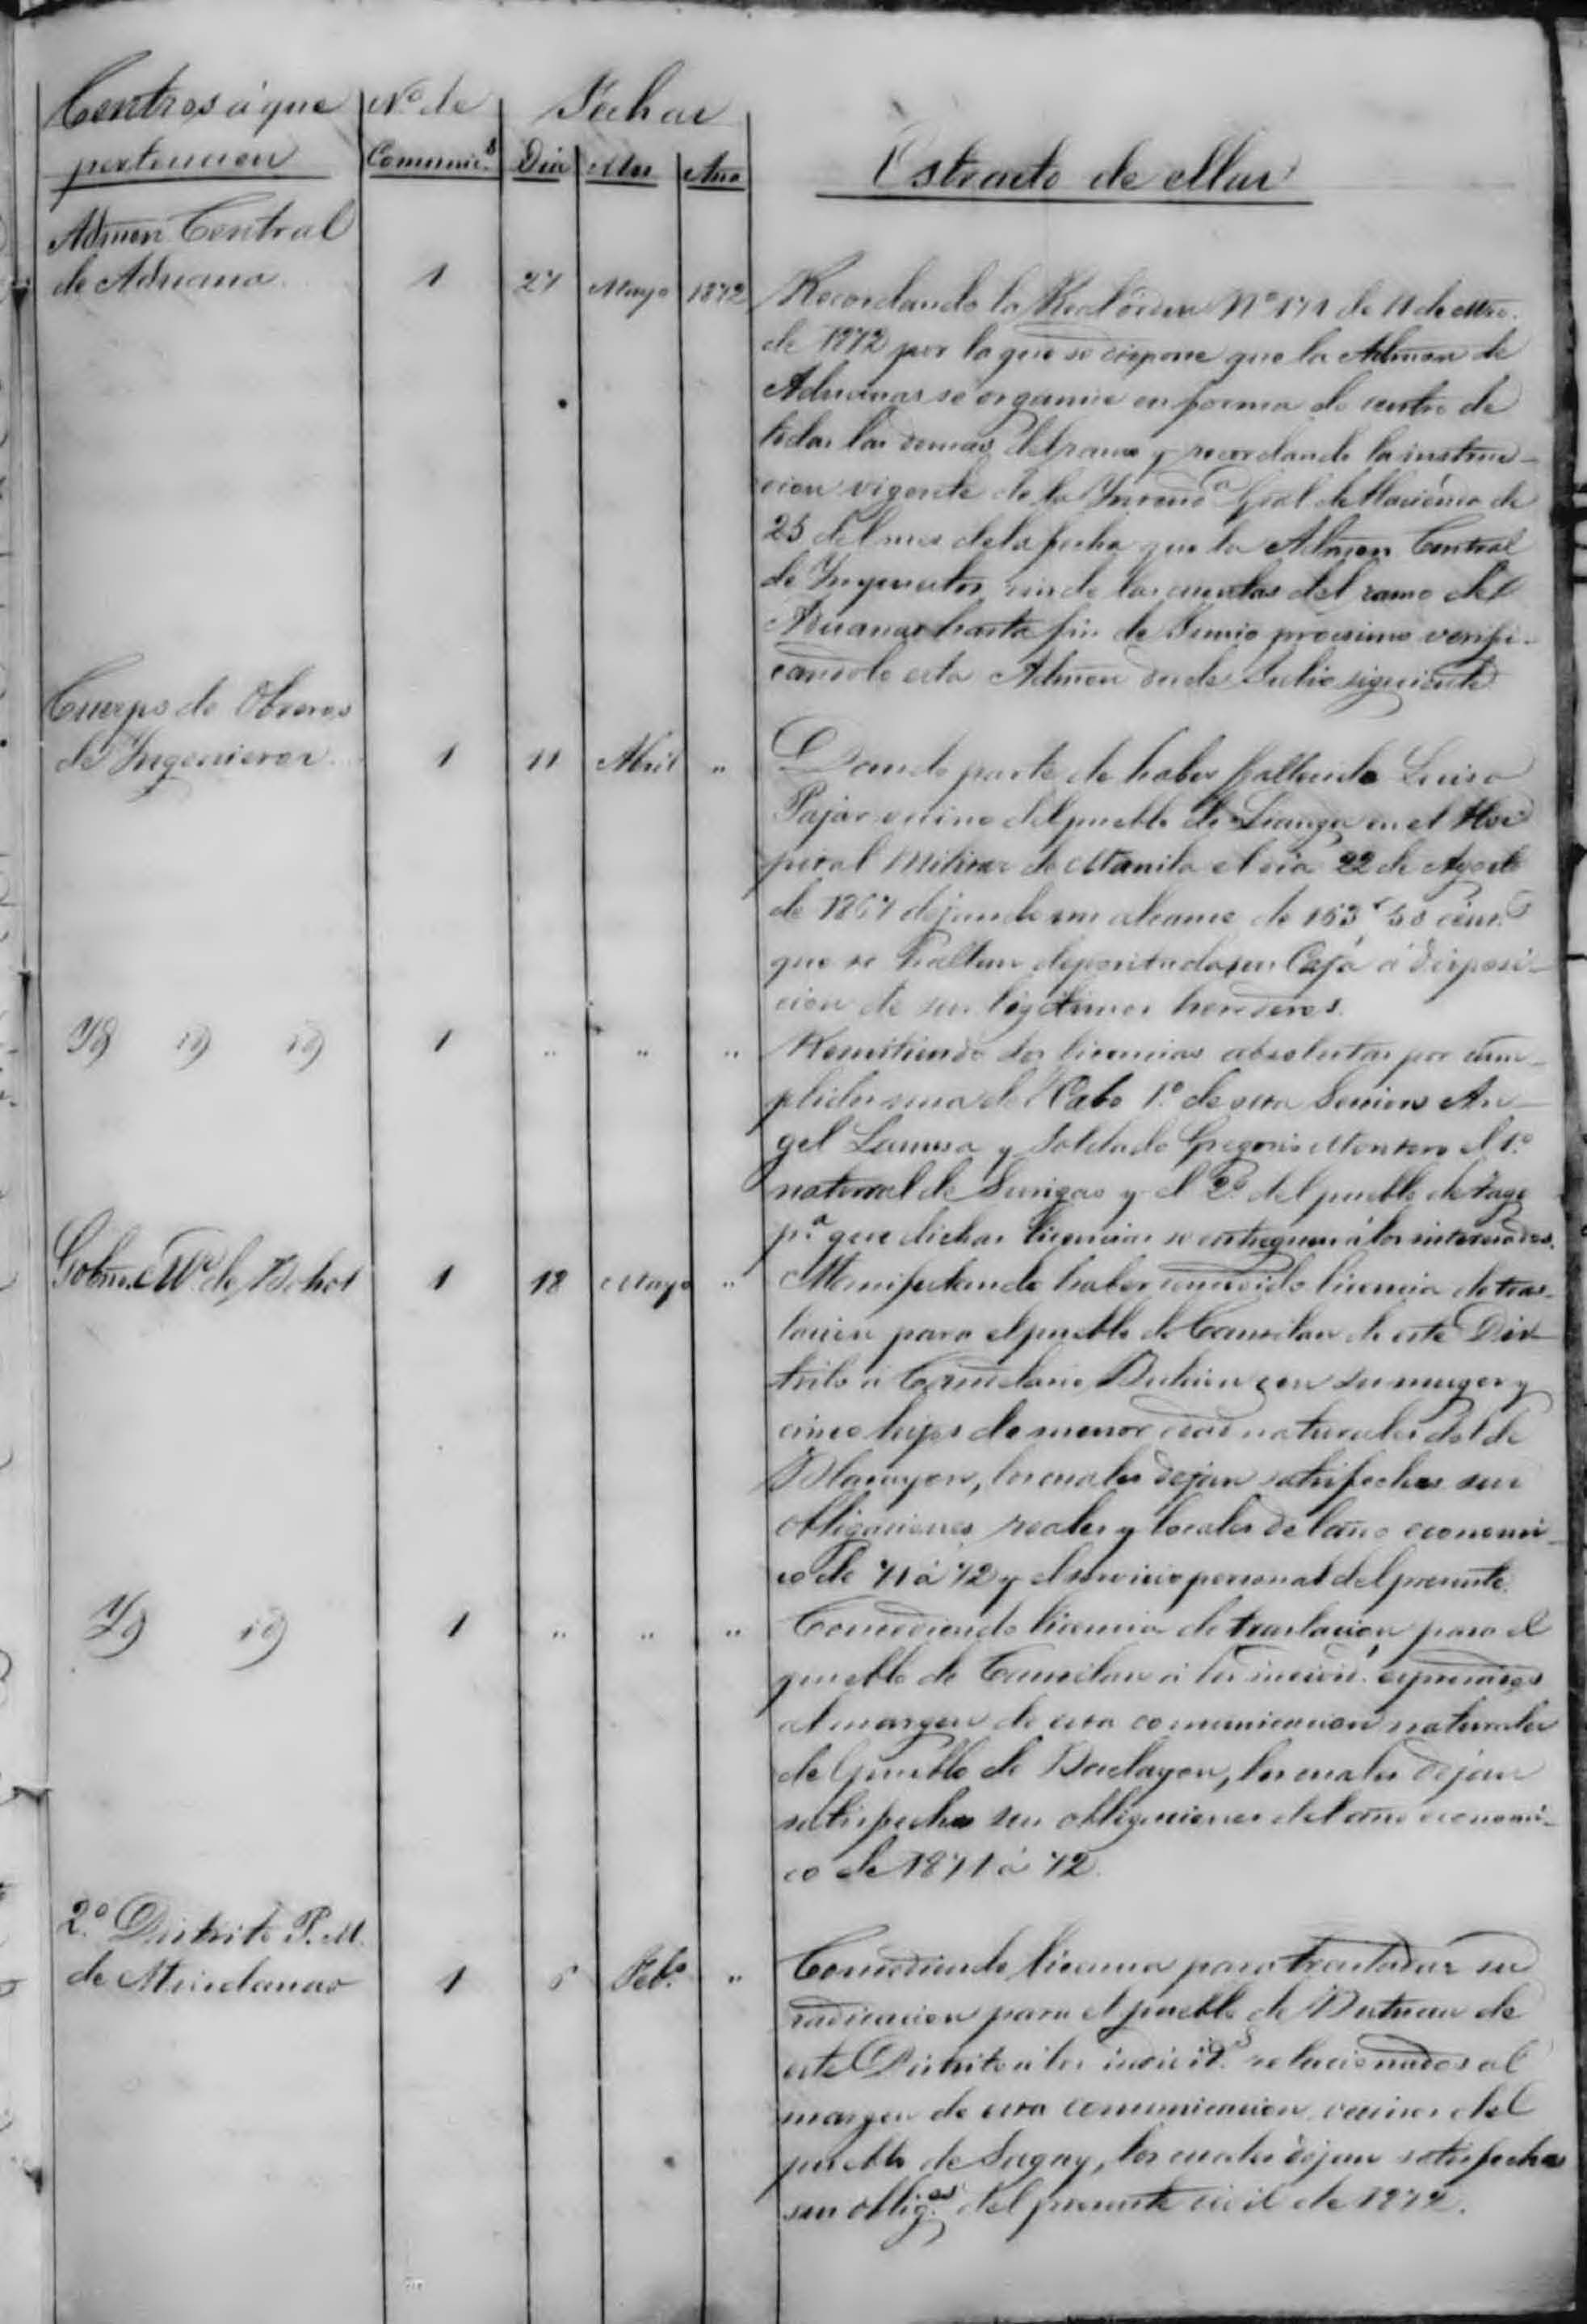 Centros á que
pertenecen
Nº de
Comunic.s
Fechas
Dia Mes Año
Estracto de ellas
Admon Central
de Aduana
1 27 Mayo 1872
Recordando la Real órden Nº 171 de 11 de
de 1872 por la que se dispone que la Admon de
Aduanas se organice en forma de centro de
todas las demas del ramo y recordando la instruc-
cion vigente de la Gral de Hacienda de
25 del mes de la fecha que la Admon Central
de Impuestos rinde las cuentas del ramo del
Aduanas hasta fin de Junio procsimo verifi-
candolo esta Admon desde Julio siguiente
Cuerpo de Obreros
de Ingenieros
1 11 Abril "
Dando parte de haber fallecido
Pajar vecino del pueblo de Lianga en el Hos
pital Militar de Manila el dia 22 de Agosto
de 1867 dejando un alcance de cént.s
que se hallan depositados en Caja á disposi-
cion de sus legitimos herederos.
Yd id id 1 " " "
Remitiendo dos licencias absolutas por cum-
plidos una del Cabo 1.º de esta Seccion An-
gel y Soldado Gregorio Montero el 1.º
natural de Surigao y el 2.º del pueblo de
p.ª que dichas licencias se entreguen á los interesados.
Gobno. de Bohol
1 18 Mayo "
Manifestando haber concedido licencia de tras-
lacion para el pueblo de Cantilan de este Dis-
trito á con su muger y
cinco hijos de menor edad naturales del de
los cuales dejan satisfechas sus
obligaciones reales y locales del año economi-
co de 71 á 72 y el servicio personal del presente.
Yd id 1 " " "
Concediendo licencia de traslacion para el
pueblo de Cantilan á los individ. espresados
al margen de esta comunicacion naturales
del pueblo de Baclayon, los cuales dejan
satisfechas sus obligaciones del año economi-
co de 1871 á 72.
2.º Distrito P. M.
de Mindanao
1 Feb.º "
Concediendo licencia para trasladar su
radicacion para el pueblo de Butuan de
este Distrito á los individ.s relacionados al
margen de esta comunicacion vecinos del
pueblo de Sagay, los cuales dejan satisfechas
sus oblig.es del presente civil de 1872.